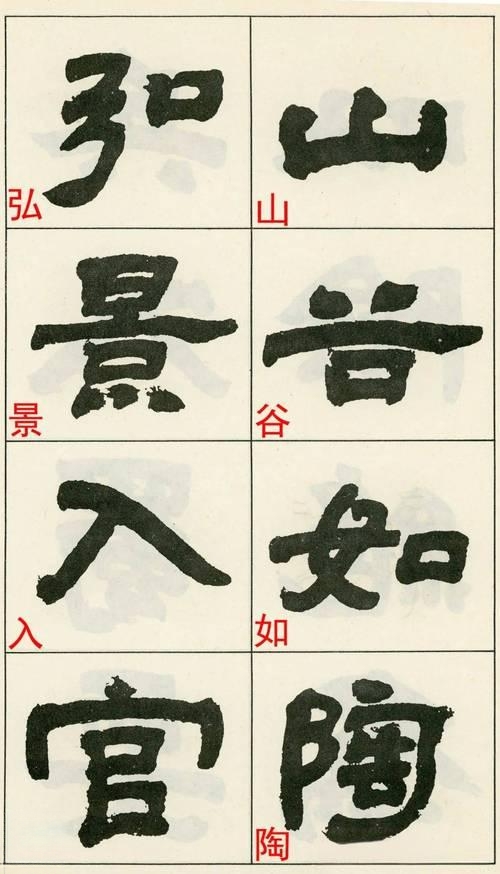 山谷如陶
山谷如陶
弘景入官
弘景入